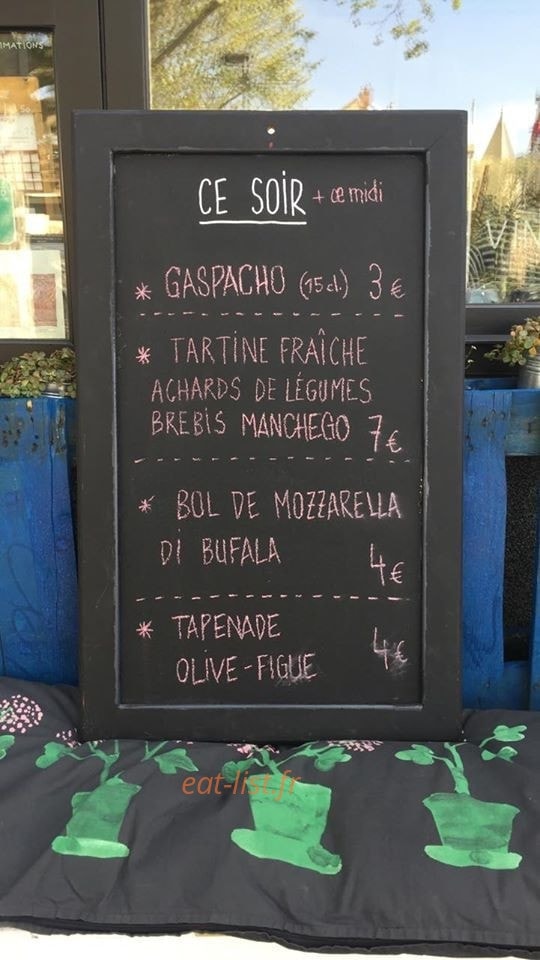 MATIONS
CE SOIR + ce midi
* GASPACHO (15cl.) 3€
* TARTINE FRAÎCHE
ACHARDS DE LÉGUMES
BREBIS MANCHEGO 7€
* BOL DE MOZZARELLA
DI BUFALA 4€
* TAPENADE
OLIVE-FIGUE 4€
eat-list.fr